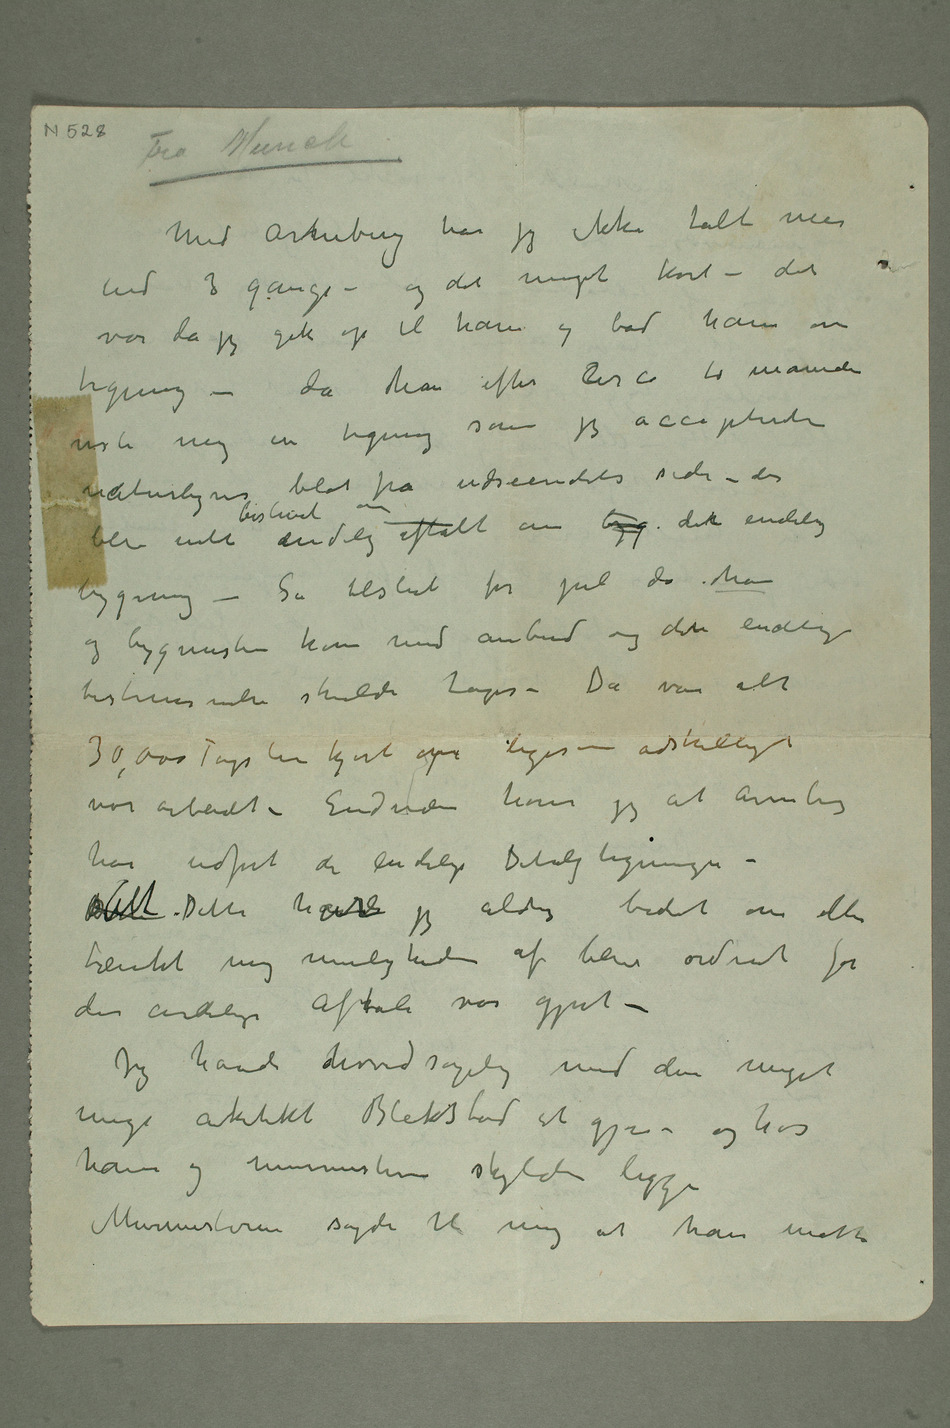 N 528
Fra Munch
Med Arneberg har jg ikke talt mer
end 3 gange – og det meget kort – det
var da jg gik op til ham og bad ham om
tegning – da han efter circa to måneder
viste mig en tegning som jg accepterte
naturligvis blot fra udseendets side – der
bestemt om
blev intet endelig aftalt om byg. det endelig
bygning – Så tilslut før jul da han
og bygmesteren kom med anbud og den endelige
bestemmelse skulde tages – Da var alt
30,000 Tagsten kjørt op liges adskilligt
var arbeidt – Endvidere hører jg at Arneberg
har udført de endelige Detaljtegninger –
Alt Dette havde jg aldrig bedet om eller
tænkt mig muligheden af blev ordnet før
den endelige Aftale var gjort –
Jg havde hovedsagelig med den meget
unge arkitekt Blakstad at gjøre – og hos
ham og murmesteren skylden ligger
Murmesteren sagde til mig at han måtte